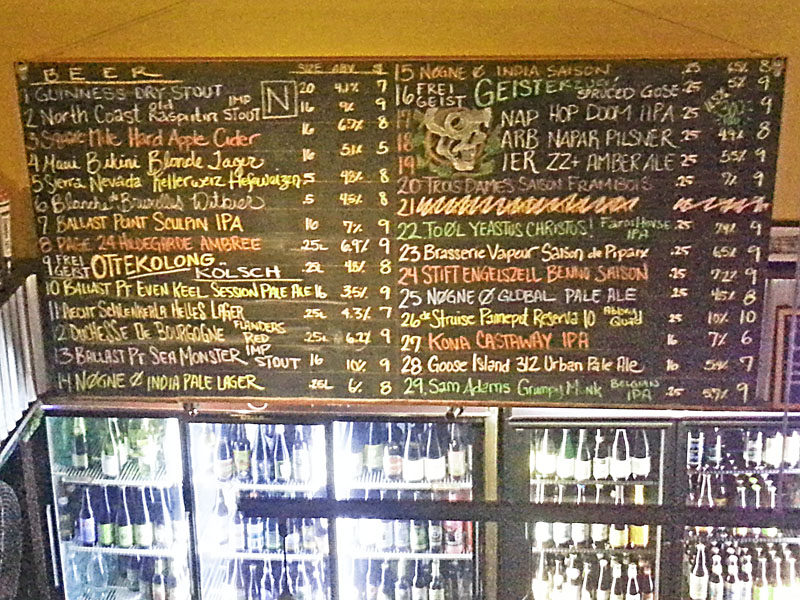 BEER SIZE ABV $
1 GUINNESS DRY STOUT 20 4.1% 7
2 North Coast Old Raspidin IMP STOUT N 16 9% 9
3 Square Mile Hard Apple Cider 16 6.7% 8
4 Maui Bikini Blonde Lager 16 5.1% 5
5 Sierra Nevada Kellerweiz Hefeweizen .5 4.8% 8
6 Blanche de Bruxelles Witbier .5 4.5% 8
7 BALLAST POINT SCULPIN IPA 16 7% 9
8 PAGE 24 HILDEGARDE AMBREE .25L 6.9% 9
9 FREI GEIST OTTEKOLONG KÖLSCH .25L 4.8% 8
10 BALLAST PT EVEN KEEL SESSION PALE ALE 16 3.5% 9
11 AECHT SCHLENKERLA HELLES LAGER .25L 4.3% 7
12 DUCHESSE DE BOURGOGNE FLANDERS RED .25L 6.2% 9
13 BALLAST PT SEA MONSTER IMP STOUT 16 10% 9
14 NØGNE Ø INDIA PALE LAGER .25L 6% 8
15 NØGNE Ø INDIA SAISON .25 6.5% 8
16 FREI GEIST GEISTER SPRUCED GOSE .25 5% 9
17 NAP HOP DOOM IIPA .25 8
18 ARB NAPAR PILSNER .25 4.9% 8
19 IER ZZ+ AMBER ALE .25 5.5% 9
20 TROIS DAMES SAISON FRAMBOIS .25 7% 9
21
22 TOØL YEASTUS CHRISTUS! FARMHOUSE IPA .25 7.4% 9
23 Brasserie Vapeur Saison de Pipaix .25 6.5% 9
24 STIFT ENGELSZELL BENNO SAISON .25 7.2% 9
25 NØGNE Ø GLOBAL PALE ALE .25 4.5% 8
26 de Struise Pannepot Reserva 10 Abbey Quad .25 10% 10
27 KONA CASTAWAY IPA 16 7% 6
28 Goose Island 312 Urban Pale Ale 16 5.4% 7
29. Sam Adams Grumpy Monk BELGIAN IPA .25 5.7% 9